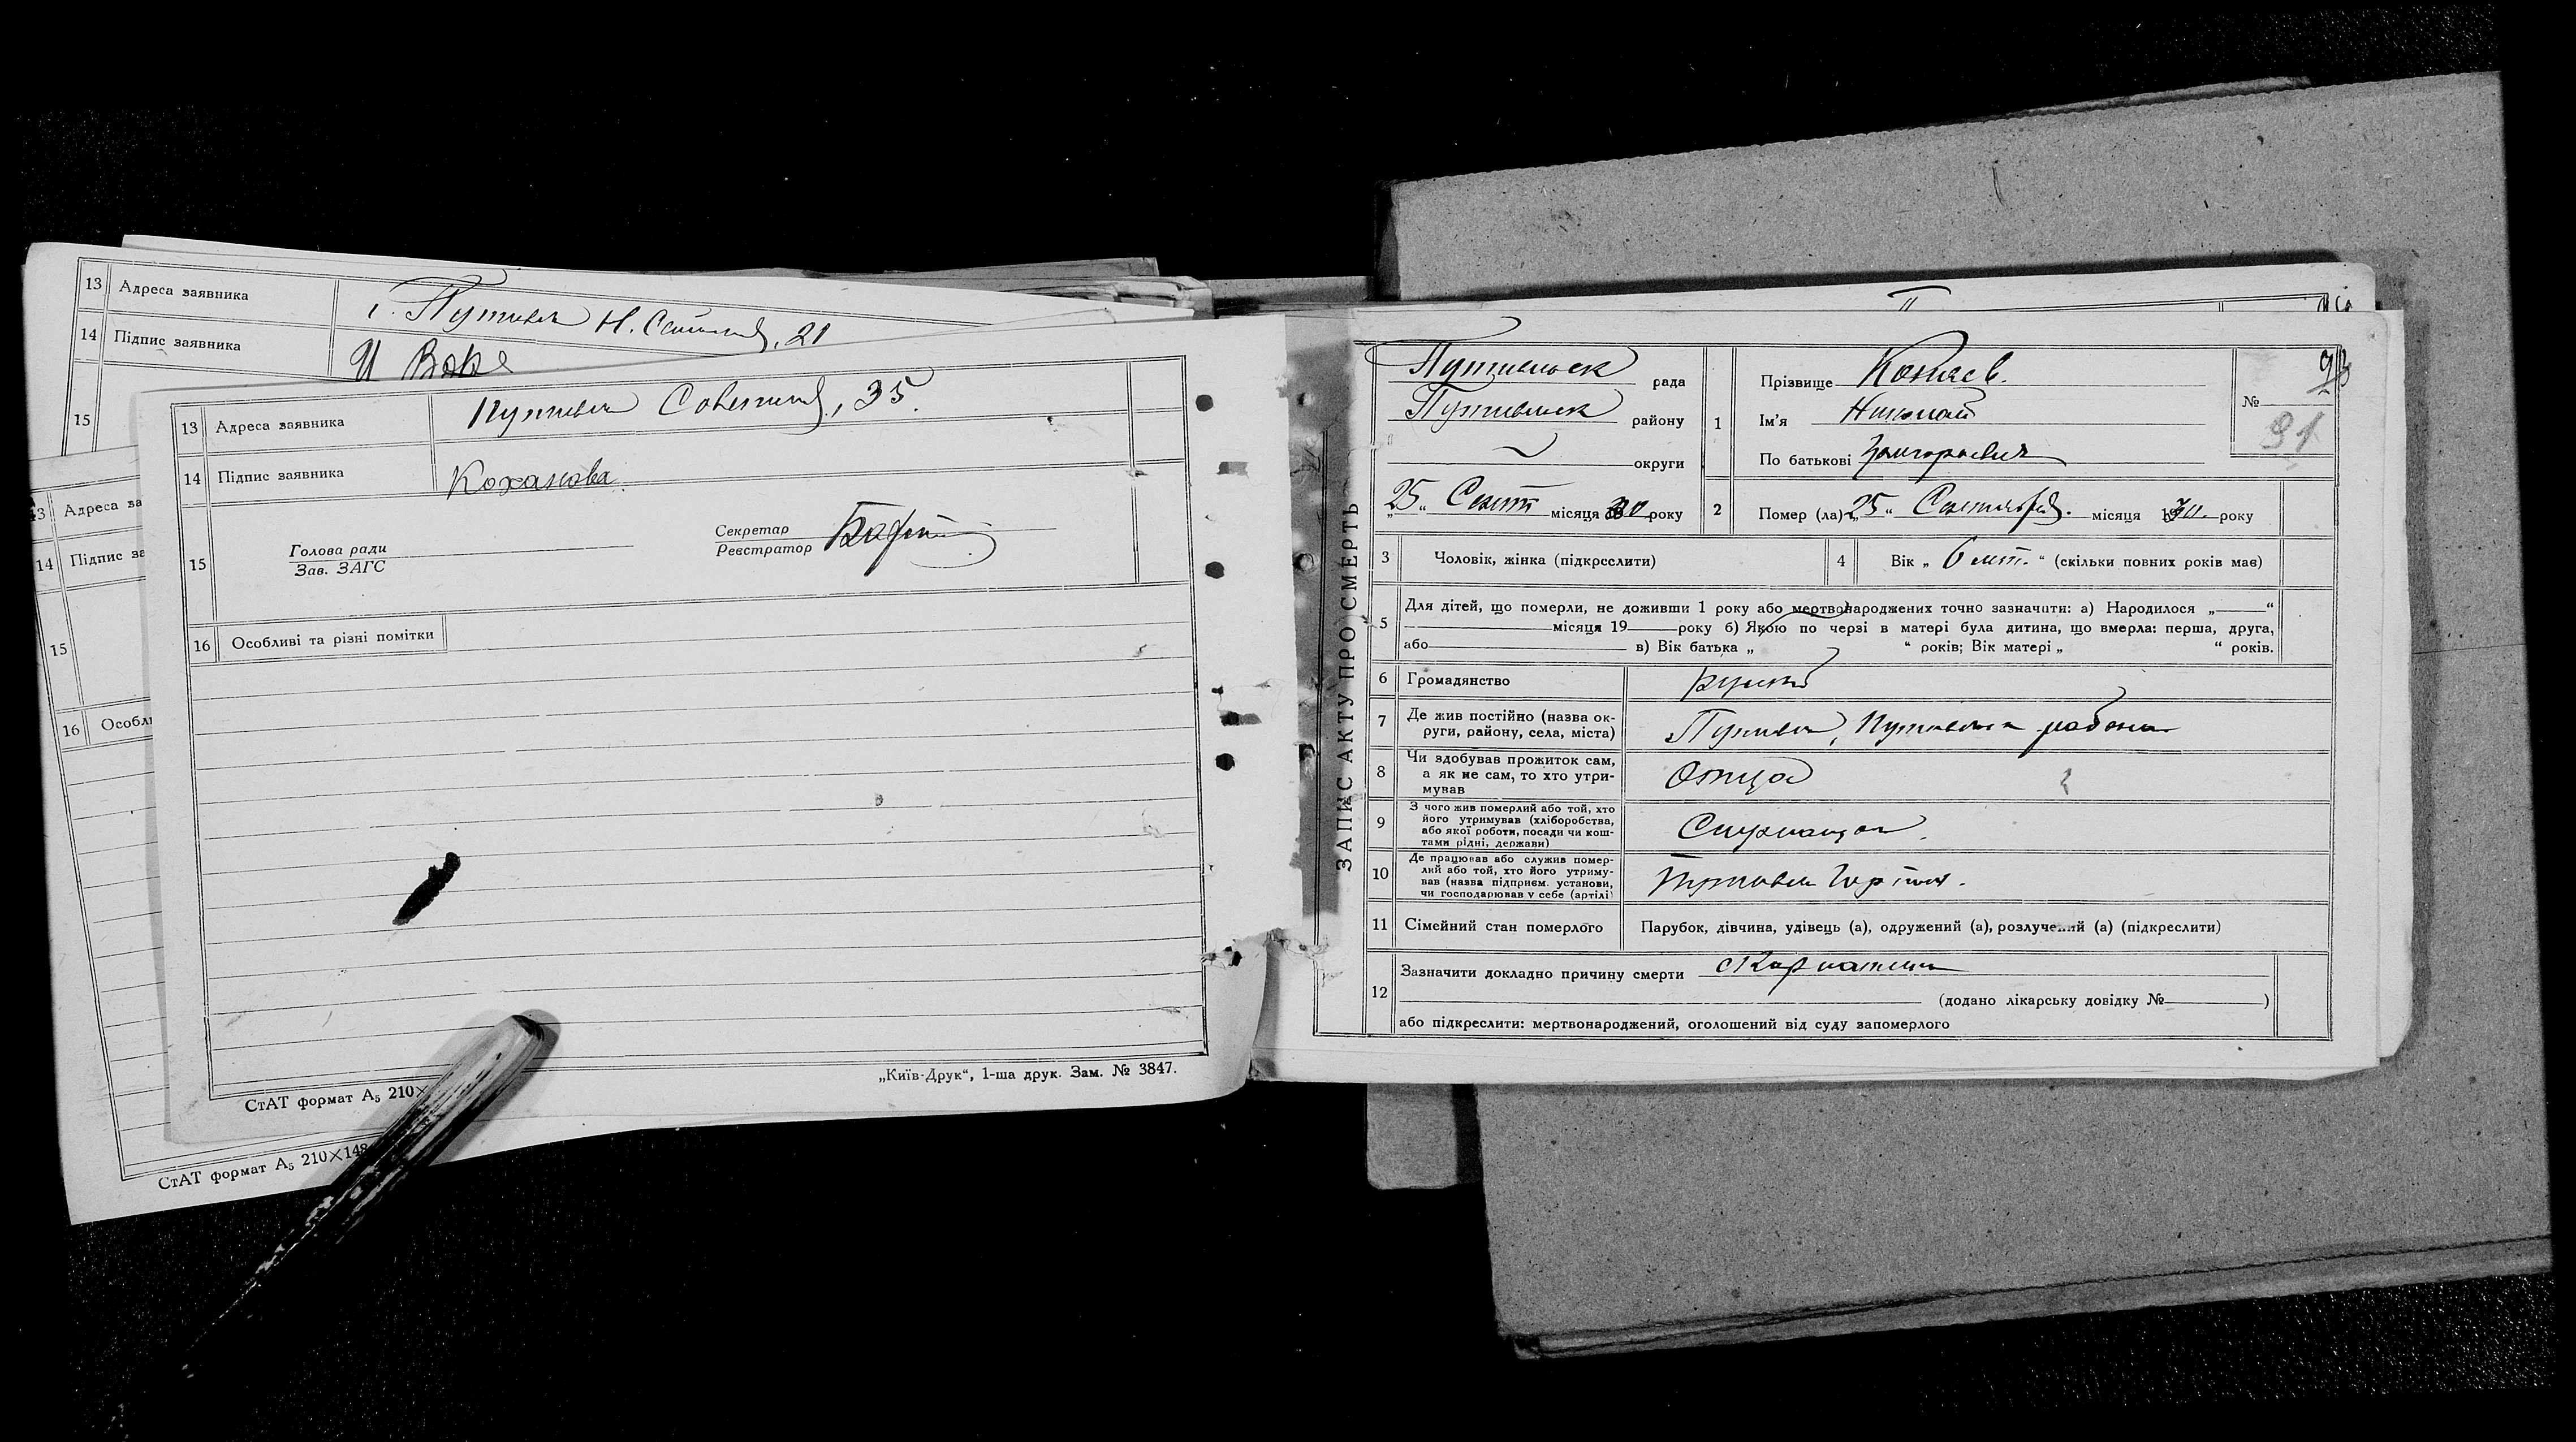 13 Адреса заявника г. Путивль Н. , 21
14 Підпис заявника И
15
13 Адреса за
14 Підпис за
15
16 Особли
СтАТ формат А₅ 210×148
13 Адреса заявника Путивль , 35.
14 Підпис заявника Коханова
15 Голова ради
Зав. ЗАГС
Секретар
Реєстратор
16 Особливі та різні помітки
СтАТ формат А₅ 210×
„Київ-Друк“, 1-ша друк. Зам. № 3847.
ЗАПИС АКТУ ПРО СМЕРТЬ
Путивльск рада
Путивльск району
округи
„25“ Сент місяця 30 року
1 Прізвище
Ім'я Николай
По батькові Григорьевич
№ 91
2 Помер (ла) „25“ Сентября. місяця 1930. року
3 Чоловік, жінка (підкреслити)
4 Вік „6 лет.“ (скільки повних років має)
5 Для дітей, що померли, не доживши 1 року або мертвонароджених точно зазначити: а) Народилося „ “
місяця 19 року б) Якою по черзі в матері була дитина, що вмерла: перша, друга,
або в) Вік батька „ “ років; Вік матері „ “ років.
6 Громадянство
7 Де жив постійно (назва ок-
руги, району, села, міста) Путивль, Путивльск района
8 Чи здобував прожиток сам,
а як не сам, то хто утри-
мував Отца
9 З чого жив померлий або той, хто
його утримував (хліборобства,
або якої роботи, посади чи кош-
тами рідні, держави)
10 Де працював або служив помер-
лий або той, хто його утриму-
вав (назва підприєм. установи,
чи господарював у себе (артілі) Путивль
11 Сімейний стан померлого Парубок, дівчина, удівець (а), одружений (а), розлучений (а) (підкреслити)
12 Зазначити докладно причину смерти Скарлатина
(додано лікарську довідку № )
або підкреслити: мертвонароджений, оголошений від суду запомерлого